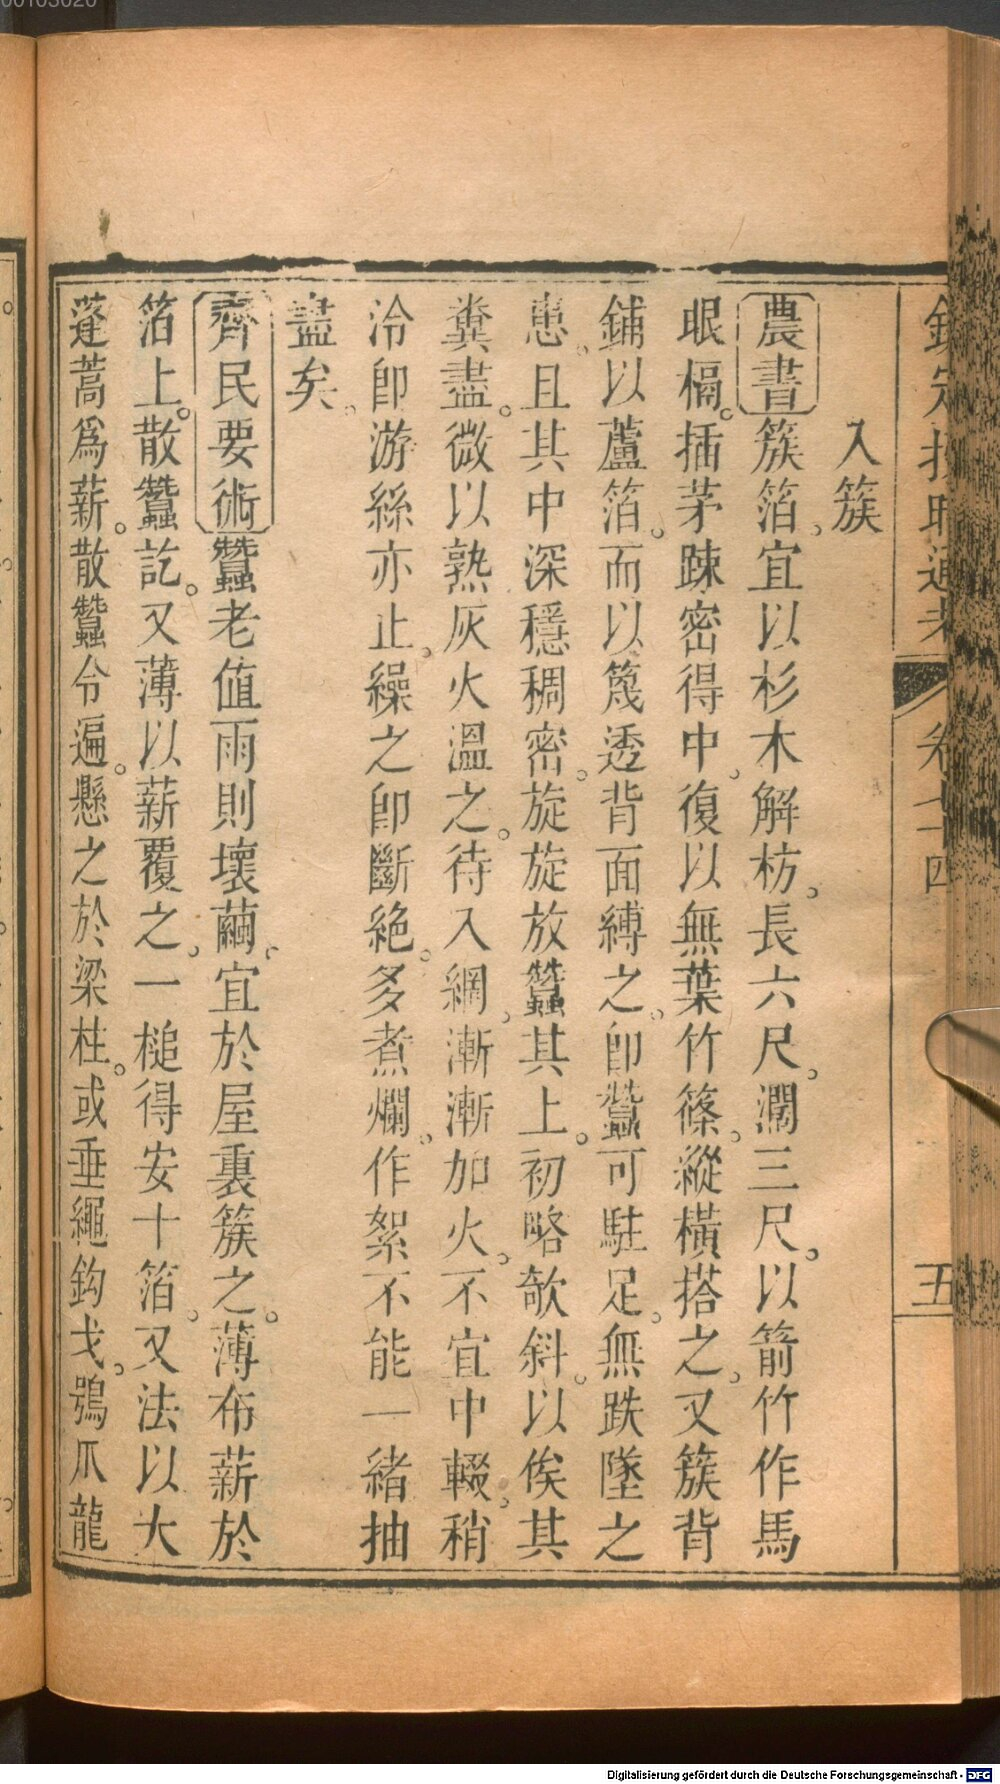 入簇
農書簇箔。宜以杉木解枋。長六尺。濶三尺。以箭竹作馬
眼槅。插茅踈密得中。復以無葉竹篠。縱橫搭之。又簇背
鋪以蘆箔。而以篾透背面縛之。即蠶可駐足。無跌墜之
患。且其中深穩稠密。旋旋放蠶其上。初略欹斜。以俟其
糞盡。微以熟灰火溫之。待入網。漸漸加火。不宜中輟。稍
冷即游絲亦止。繰之即斷絕。多煮爛。作絮不能一緒抽
盡矣。
齊民要術蠶老值雨則壞繭。宜於屋裏簇之。薄布薪於
箔上。散蠶訖。又薄以薪覆之。一槌得安十箔。又法以大
蓬蒿爲薪。散蠶令遍。懸之於梁柱。或垂繩鈎戈。鴞爪龍
欽定授時通考 卷七十四 五
00103020
Digitalisierung gefördert durch die Deutsche Forschungsgemeinschaft - DFG